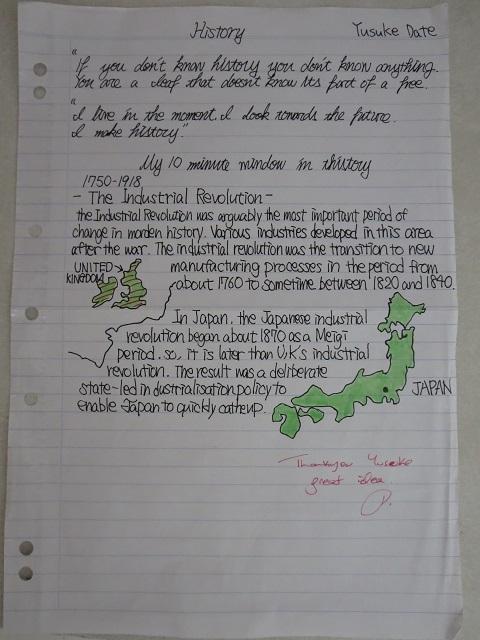 History
Yusuke Date
"If you don't know history you don't know anything.
You are a leaf that doesn't know its part of a tree.
"I live in the moment. I look towards the future.
I make history."
My 10 minute window in thistory
1750-1918
- The Industrial Revolution -
the Industrial Revolution was arguably the most important period of
change in morden history. Various industries developed in this area
after the war. The industrial revolution was the transition to new
manufacturing processes in the period from
about 1760 to sometime between 1820 and 1840.
UNITED
KINGDOM
In Japan, the Japanese industrial
revolution began about 1870 as a Meigi
period. so, it is later than U.K's industrial
revolution. The result was a deliberate
state-led in dustrialisation policy to
enable Japan to quickly catheup.
JAPAN
Thankyou Yusuke
great idea.